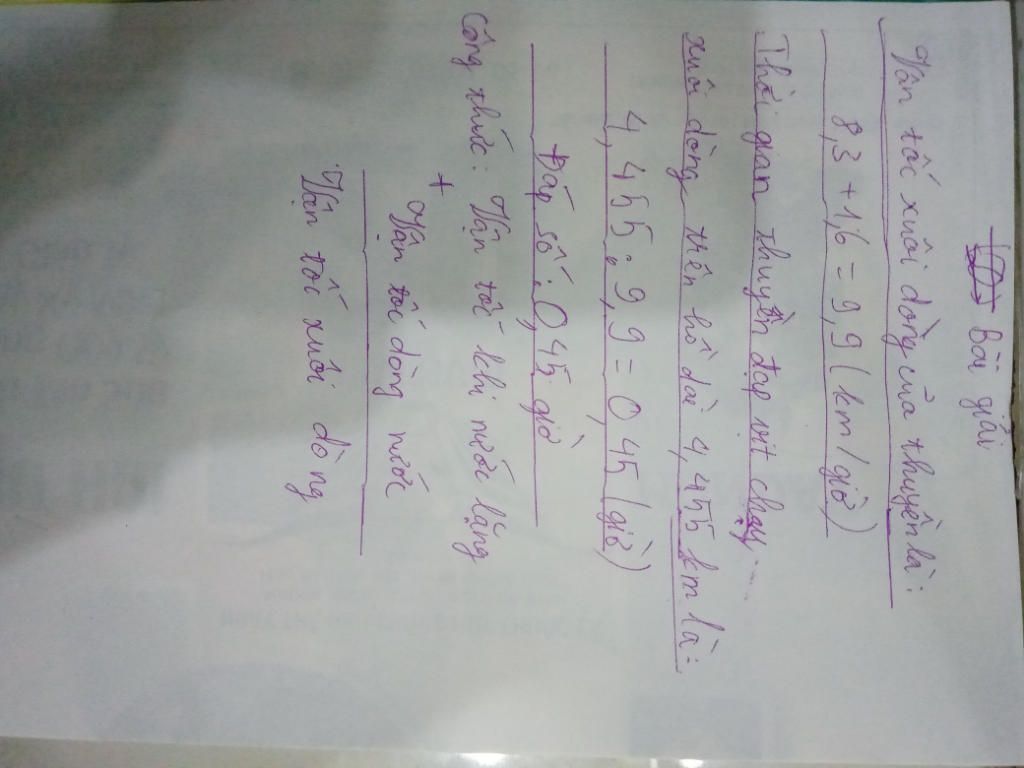 Bài giải
Vận tốc xuôi dòng của thuyền là:
8,3 + 1,6 = 9,9 (km/giờ)
Thời gian thuyền đạp vịt chạy....
xuôi dòng trên hồ dài 4,455 km là:
4,455 : 9,9 = 0,45 (giờ)
Đáp số: 0,45 giờ
Công thức: Vận tốc khi nước lặng
+
Vận tốc dòng nước
Vận tốc xuôi dòng